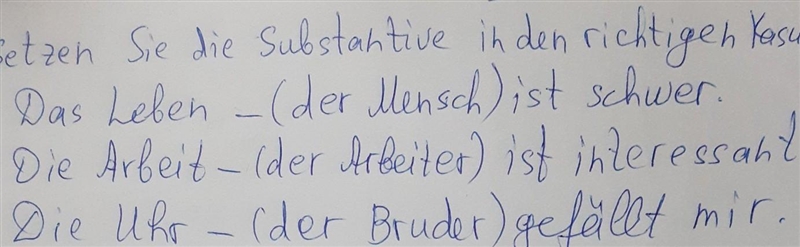 Setzen Sie die Substantive in den richtigen Kasu
Das Leben – (der Mensch) ist schwer.
Die Arbeit – (der Arbeiter) ist interessant
Die Uhr – (der Bruder) gefällt mir.